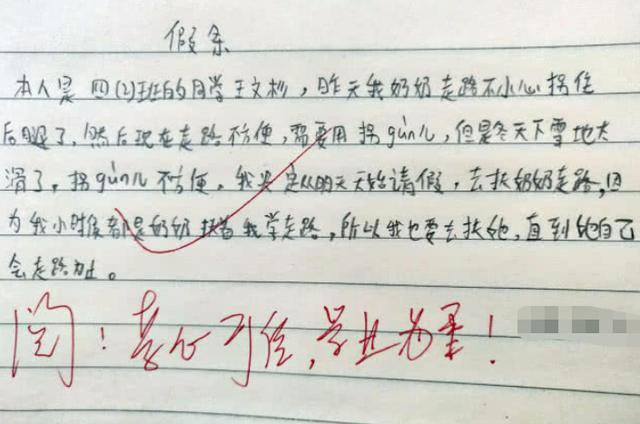 假条
本人是四(2)班的同学王文杉,昨天我奶奶走路不小心拐住
后腿了,然后现在走路不方便,需要用拐gùn儿,但是冬天下雪地太
滑了,拐gùn儿不方便,我决定从明天开始请假,去扶奶奶走路,因
为我小时候都是奶奶扶着我学走路,所以我也要去扶她,直到她自己
会走路为止。
阅!孝心可佳,学业为重!